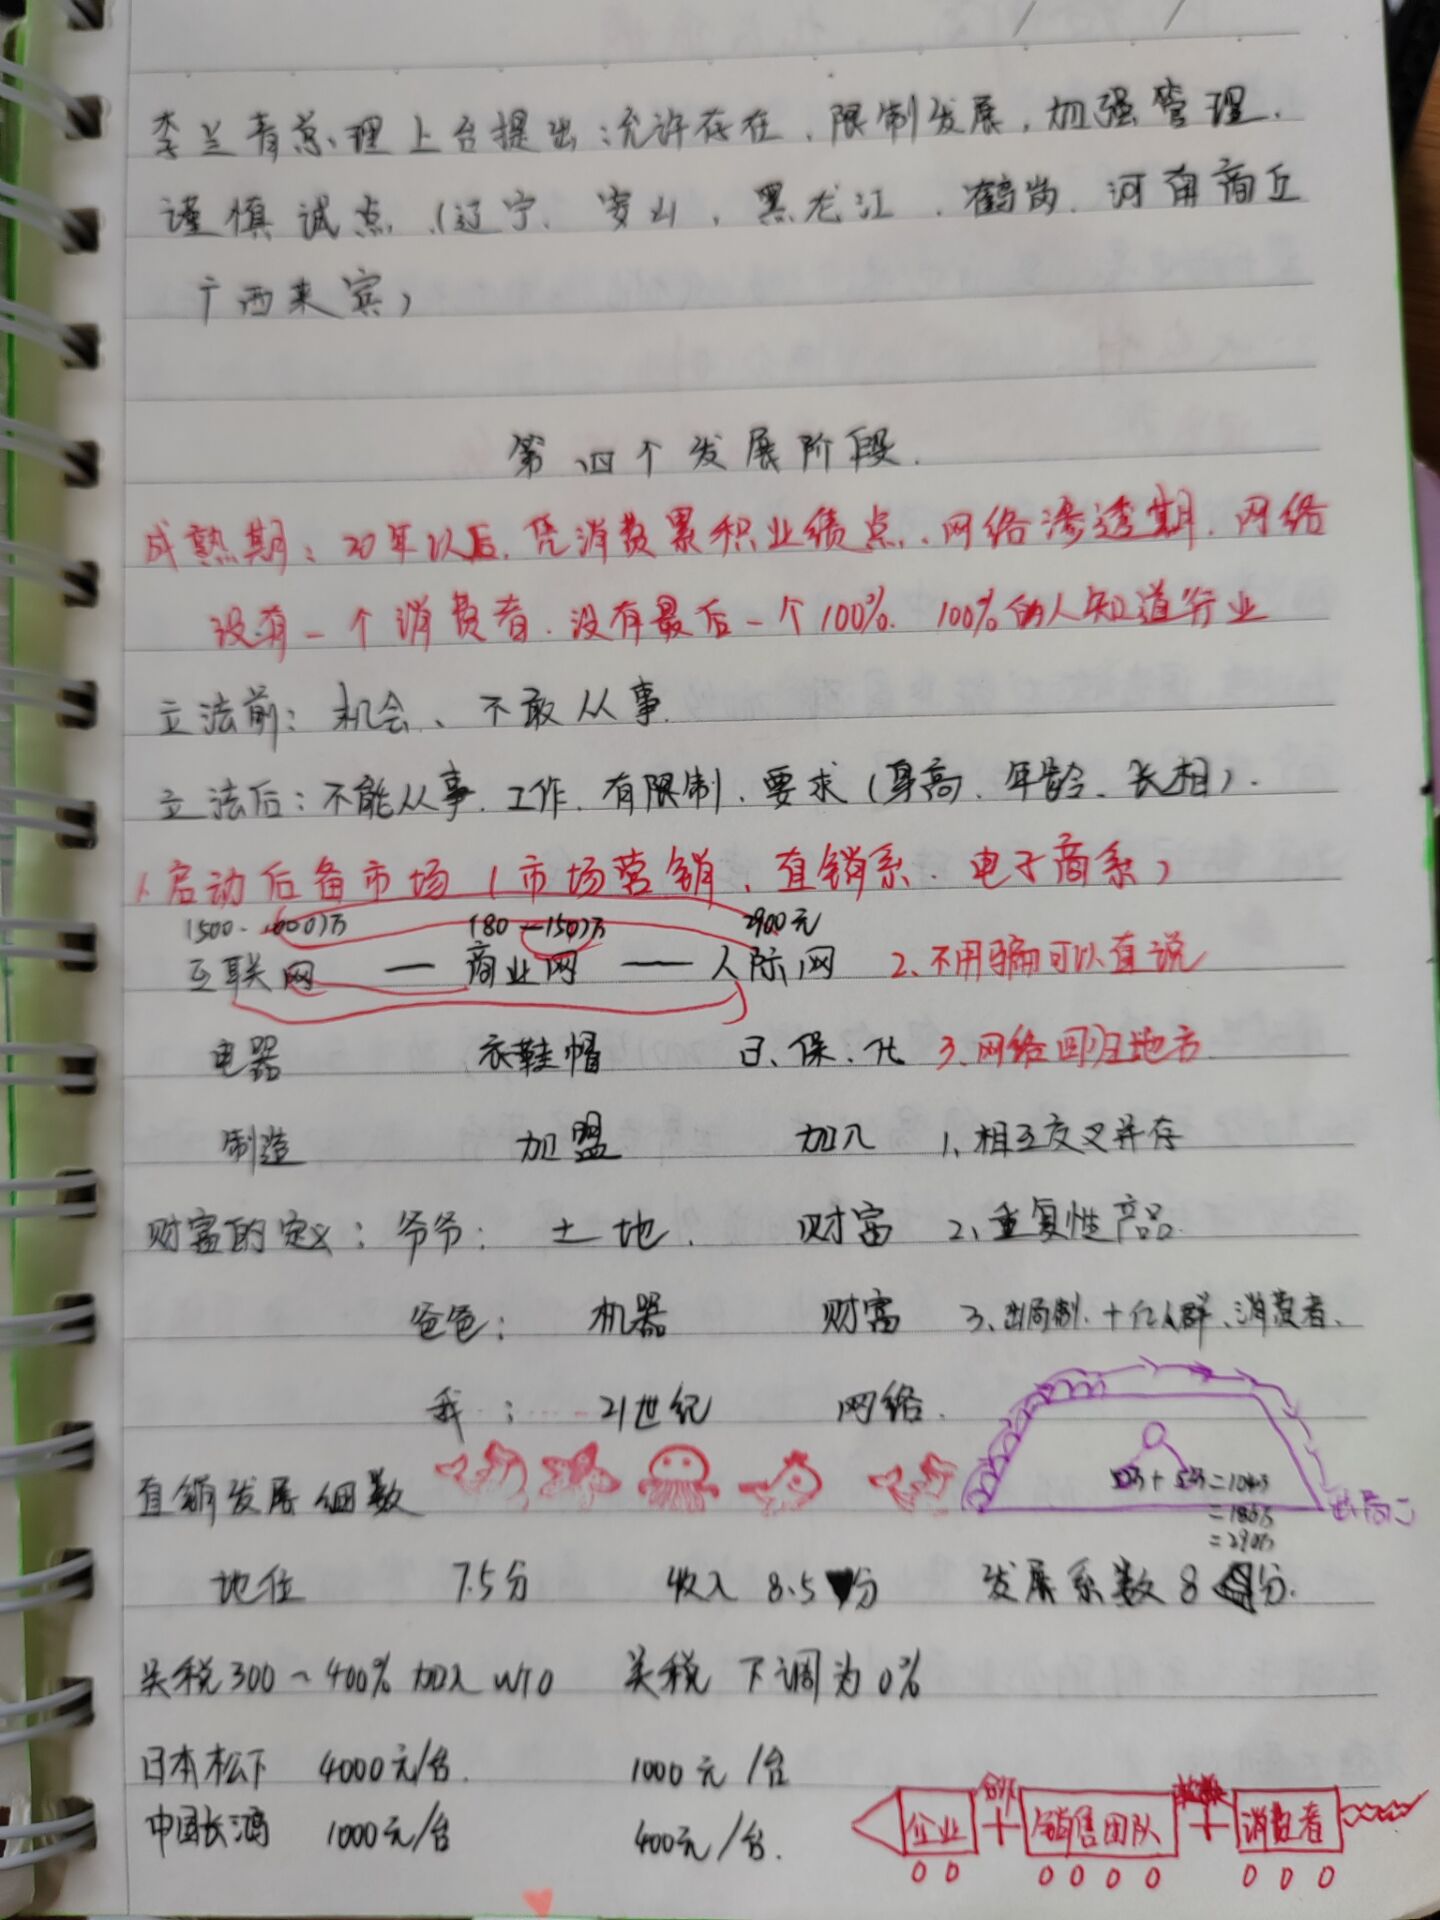 李兰青总理上台提出:允许存在、限制发展,加强管理、
谨慎试点(辽宁、鞍山,黑龙江、鹤岗、河南商丘
广西来宾)
第四个发展阶段.
成熟期:20年以后、凭消费累积业绩点、网络渗透期、网络
没有一个消费者、没有最后一个100%. 100%的人知道行业
立法前:机会、不敢从事.
立法后:不能从事、工作、有限制、要求(身高、年龄、长相).
1.启动后备市场(市场营销、直销系、电子商系)
(500-600)万 (80-150)万 2900元
互联网 — 商业网 — 人际网 2、不用骗可以直说
电器 衣鞋帽 日、保、化 3、网络回归地方
制造 加盟 加入 1、相互交叉并存
财富的定义:爷爷: 土地. 财富 2、重复性产品.
爸爸: 机器 财富 3、出局制、十亿人群、消费者、
我: 21世纪 网络.
直销发展细数
=104万
=186万
=290万
出局
地位 7.5分 收入 8.5分 发展系数8分.
关税300~400%加入WTO 关税下调为0%
日本松下 4000元/台. 1000元/台
中国长鸿 1000元/台 400元/台.
企业 销售团队 消费者